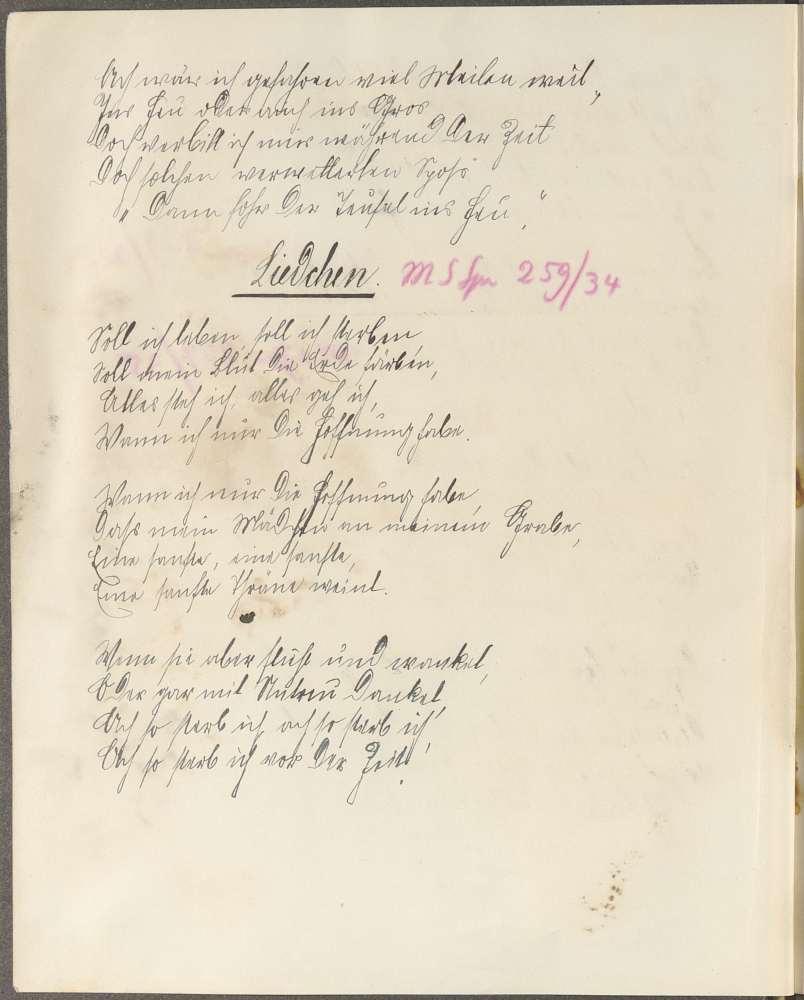 Ach wär ich gefahren viel Meilen weit,
Ins Heu oder auch ins Gras
Doch verbitt ich mir während der Zeit
Doch solchen verwetterten Spass
"Dann fahr der Teufel ins Heu."
Liedchen. MS Spn 259/34
Soll ich leben, soll ich sterben,
Soll mein Blut die Erde färben,
Alles steh ich, alles geh ich,
Wann ich nur die Hoffnung habe.
Wann ich nur die Hoffnung habe,
Dass mein Mädchen an meinem Grabe,
Eine sanfte, eine sanfte,
Eine sanfte Thräne weint.
Wenn sie aber flucht und wanket,
Oder gar mit Untreu danket,
Ach so sterb ich, ach so sterb ich,
Ach so sterb ich vor der Zeit!